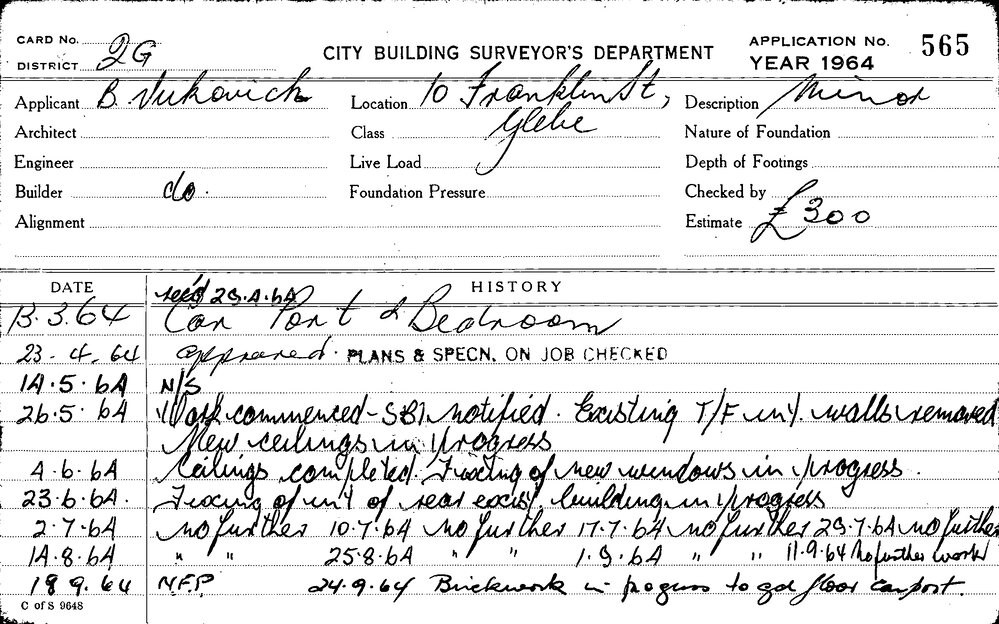 CARD No. 2G
DISTRICT
CITY BUILDING SURVEYOR'S DEPARTMENT
APPLICATION No. 565
YEAR 1964
Applicant B. Vukovich
Location 10 Franklin St, Glebe
Description Minor
Architect
Class
Nature of Foundation
Engineer
Live Load
Depth of Footings
Builder do.
Foundation Pressure
Checked by
Alignment
Estimate £300
DATE
HISTORY
rec'd 23.4.64
13.3.64 Car Port & Bedroom
23-4-64 approved. PLANS & SPECN. ON JOB CHECKED
14.5.64 N/S
26.5.64 Work commenced - SBI notified. Existing T/F int. walls removed
New ceilings in progress
4.6.64 Ceilings completed. Fixing of new windows in progress.
23.6.64. Fixing of int of rear exist building in progress
2.7.64 no further 10.7.64 no further 17.7.64 no further 29.7.64 no further
14.8.64 " " 25.8.64 " " 1.9.64 " " 11.9.64 No further work
18 9.64 N.F.P 24.9.64 Brickwork in progress to gd floor carport.
C of S 9648